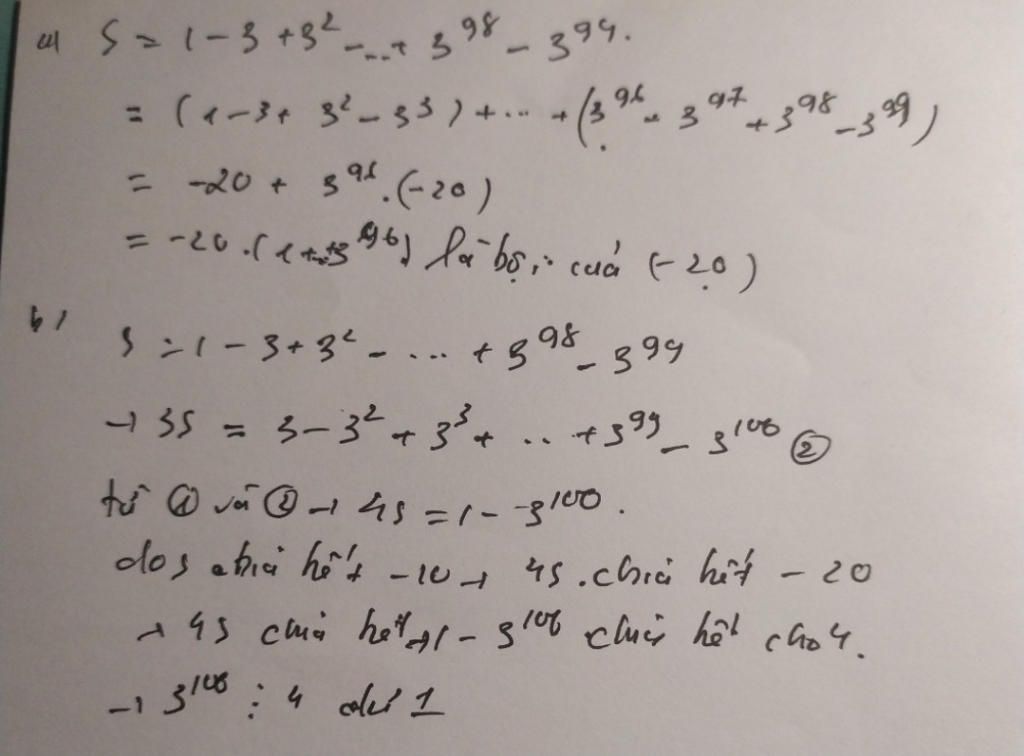 a) S = 1 - 3 + 3² - ... + 3⁹⁸ - 3⁹⁹.
= (1 - 3 + 3² - 3³) + ... + (3⁹⁶ - 3⁹⁷ + 3⁹⁸ - 3⁹⁹)
= -20 + 3⁹⁶.(-20)
= -20.(1 + ... + 3⁹⁶) là bội của (-20)
b) S = 1 - 3 + 3² - ... + 3⁹⁸ - 3⁹⁹
→ 3S = 3 - 3² + 3³ + .. + 3⁹⁹ - 3¹⁰⁰ ②
từ ① và ② → 4S = 1 - 3¹⁰⁰.
do S chia hết -20 → 4S chia hết - 20
→ 4S chia hết → 1 - 3¹⁰⁰ chia hết cho 4.
→ 3¹⁰⁰ : 4 dư 1